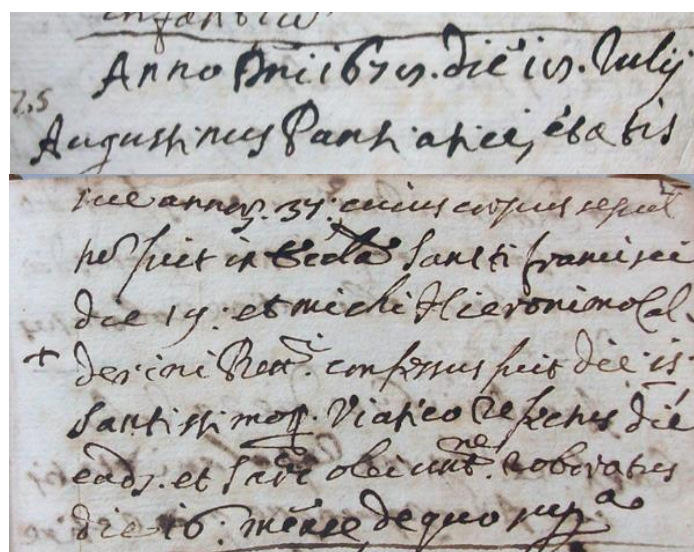 Anno Dni 1675. die 15. Iulij
25
Augustinus Pantiatici, etatis
sue annor. 37: cuius corpus sepul
tu fuit in Eccla Santti Francisci
die 15: et michi Hieronimo Cal
derini Rett.i confessus fuit die 15
Santissimoq. Viatico refectus die
ead. et Sacri olei unt.ne roboratus
die 16: mense de quo sup.a